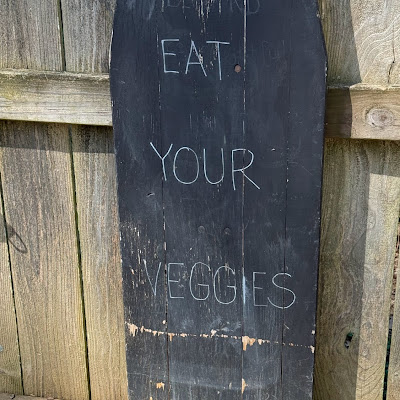 EAT
YOUR
VEGGIES